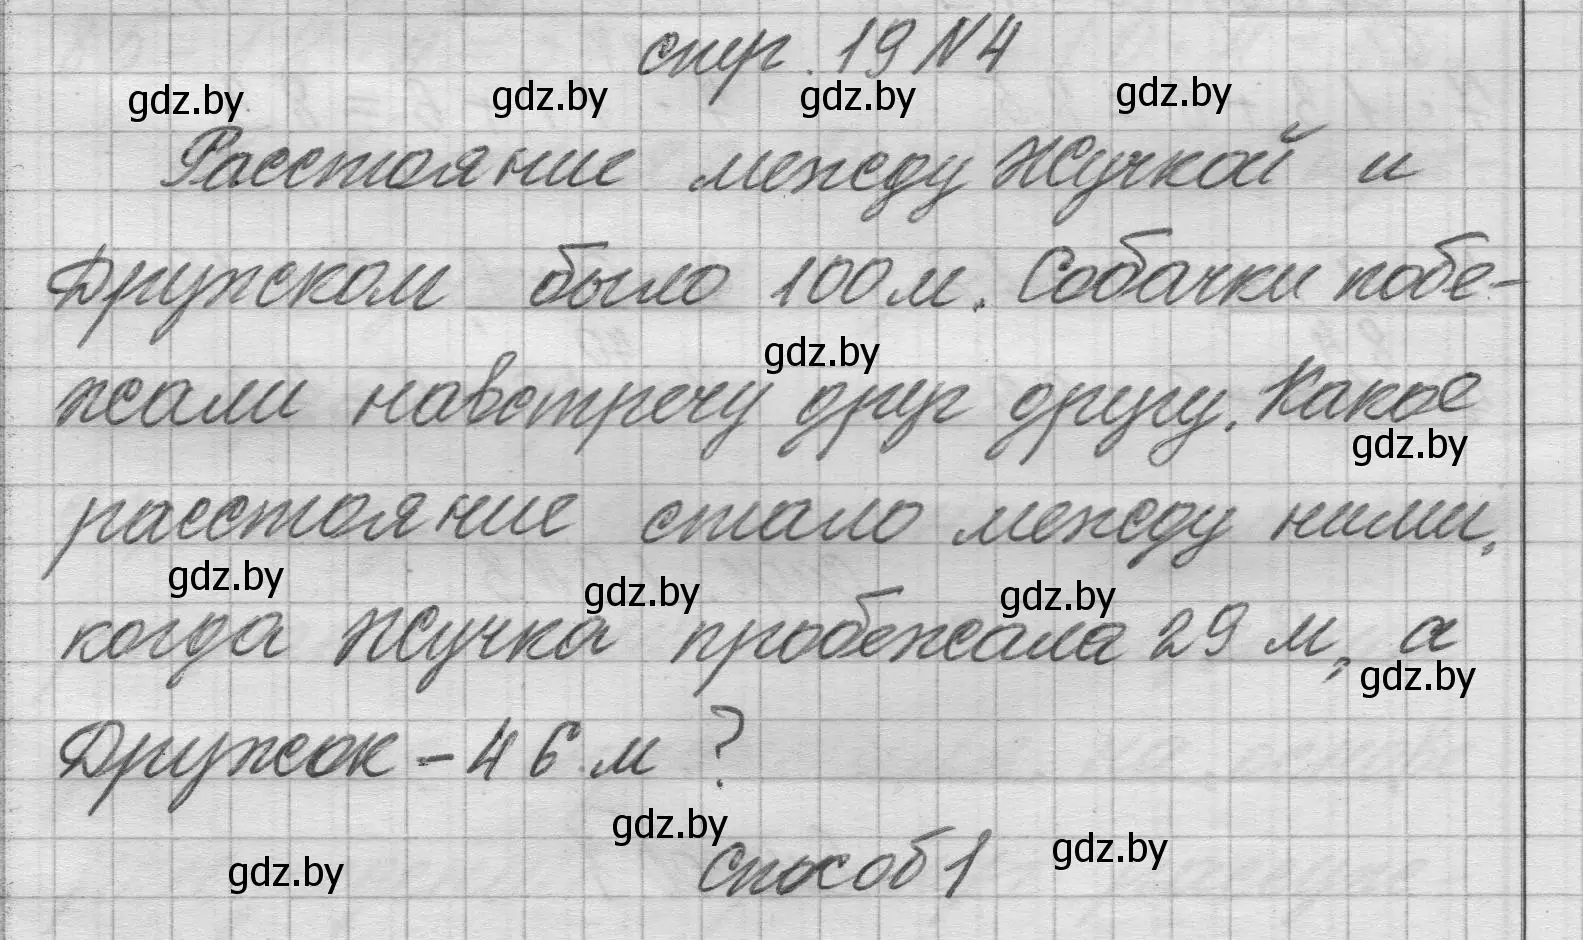 стр. 19 N 4
gdz.by gdz.by gdz.by gdz.by
Расстояние между Жучкой и
Дружком было 100 м. Собачки побе-
gdz.by
жали навстречу друг другу. Какое
gdz.by
расстояние стало между ними,
gdz.by gdz.by gdz.by
когда Жучка пробежала 29 м, а
gdz.by
Дружок - 46 м ?
gdz.by
способ 1
gdz.by gdz.by